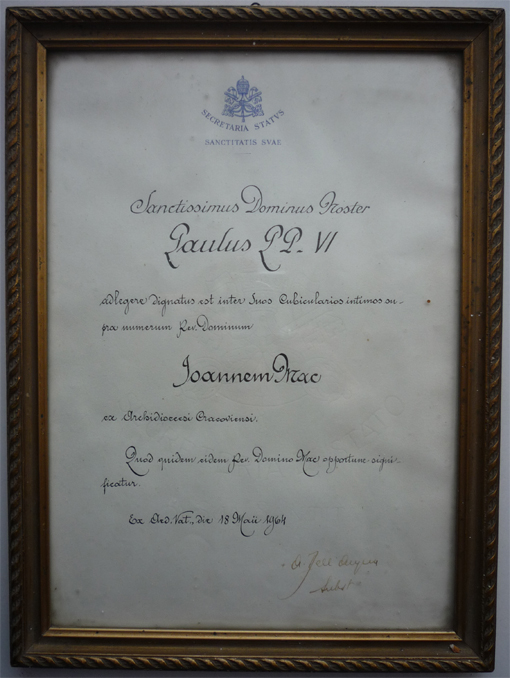 SECRETARIA STATVS
SANCTITATIS SVAE
Sanctissimus Dominus Noster
Paulus PP. VI
adlegere dignatus est inter Suos Cubicularios intimos su-
pra numerum Rev. Dominum
Ioannem Mac
ex Archidioecesi Cracoviensi.
Quod quidem eidem Rev. Domino Mac opportune signi-
ficatur.
Ex Aed. Vat., die 18 Maii 1964
Subst